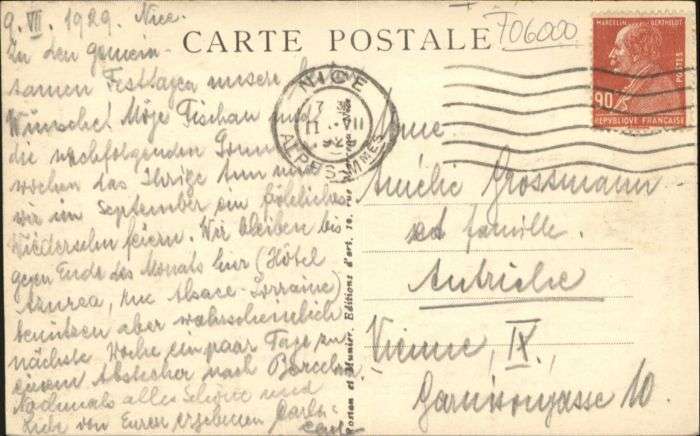 9. VII. 1929. Nice.
Zu den gemein-
samen Festtagen unsere
Wünsche! Möge Tischau und
die nachfolgenden
wochen das Ihrige tun und
wir im September ein fröhliches
Wiedersehn feiern. Wir bleiben bis
gegen Ende des Monats hier (Hôtel
Azurea, rue Alsace-Lorraine)
benützen aber wahrscheinlich
nächste Woche ein paar Tage zu
einem Abstecher nach Barcelona
Nochmals alles Schöne und
Liebe von Euren ergebenen Carlo
CARTE POSTALE
706000
MARCELIN BERTHELOT
POSTES
90c
REPUBLIQUE FRANÇAISE
NICE
ALPES MMES
Mme
Amélie Grossmann
et famille.
Autriche
Vienne, IX.,
Garnisongasse 10
Postan et Munier, Editions d'art, 10, rue